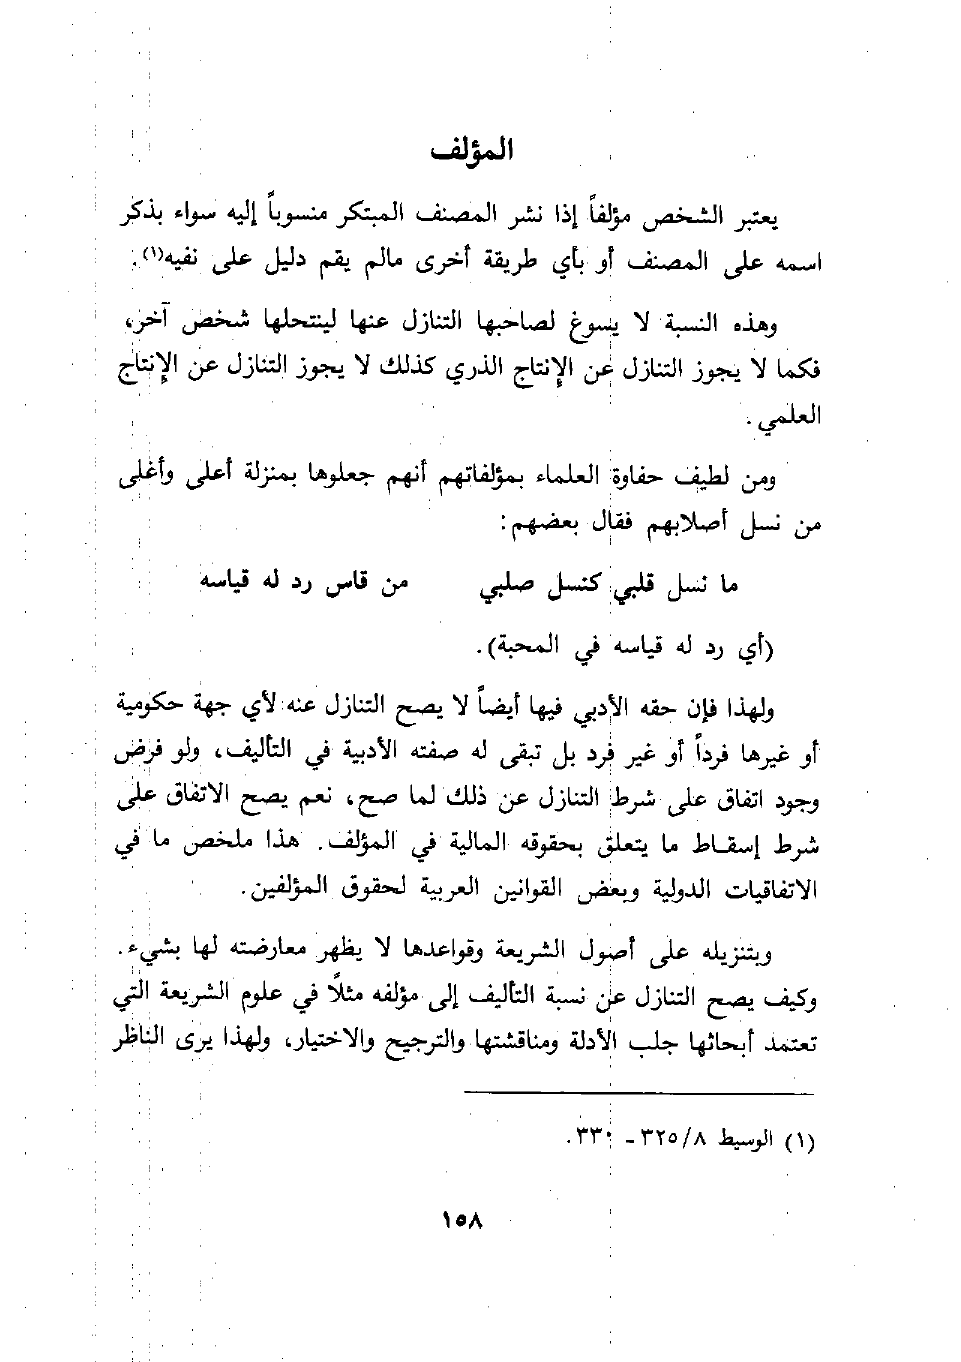 المؤلف
يعتبر الشخص مؤلفاً إذا نشر المصنف المبتكر منسوباً إليه سواء بذكر
اسمه على المصنف أو بأي طريقة أخرى مالم يقم دليل على نفيه(١).
وهذه النسبة لا يسوغ لصاحبها التنازل عنها لينتحلها شخص آخر،
فكما لا يجوز التنازل عن الإنتاج الذري كذلك لا يجوز التنازل عن الإنتاج
العلمي.
ومن لطيف حفاوة العلماء بمؤلفاتهم أنهم جعلوها بمنزلة أعلى وأغلى
من نسل أصلابهم فقال بعضهم:
ما نسل قلبي كنسل صلبي من قاس رد له قياسه
(أي رد له قياسه في المحبة).
ولهذا فإن حقه الأدبي فيها أيضاً لا يصح التنازل عنه لأي جهة حكومية
أو غيرها فرداً أو غير فرد بل تبقى له صفته الأدبية في التأليف، ولو فرض
وجود اتفاق على شرط التنازل عن ذلك لما صح، نعم يصح الاتفاق على
شرط إسقاط ما يتعلق بحقوقه المالية في المؤلف. هذا ملخص ما في
الاتفاقيات الدولية وبعض القوانين العربية لحقوق المؤلفين.
وبتنزيله على أصول الشريعة وقواعدها لا يظهر معارضته لها بشيء.
وكيف يصح التنازل عن نسبة التأليف إلى مؤلفه مثلاً في علوم الشريعة التي
تعتمد أبحاثها جلب الأدلة ومناقشتها والترجيح والاختيار، ولهذا يرى الناظر
(١) الوسيط ٨/ ٣٢٥ - ٣٣٠.
١٥٨